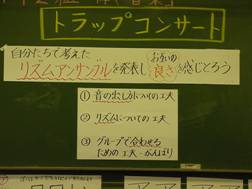 トラップコンサート
自分たちで考えた
リズムアンサンブルを発表し お互いの良さを感じとろう
① 音の出し方についての工夫
② リズムについての工夫
③ グループで合わせる
ための工夫・がんばり